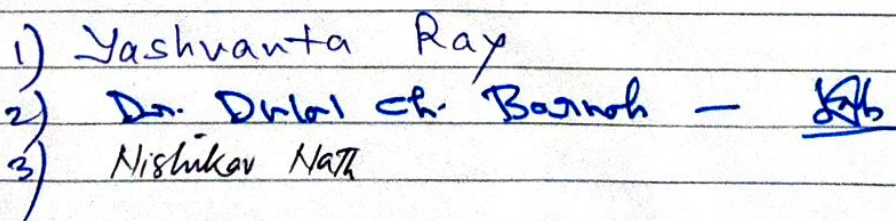 1) Yashvanta Ray
2) Dr. Dulal Ch. Baruah -
3) Nishikar Nath